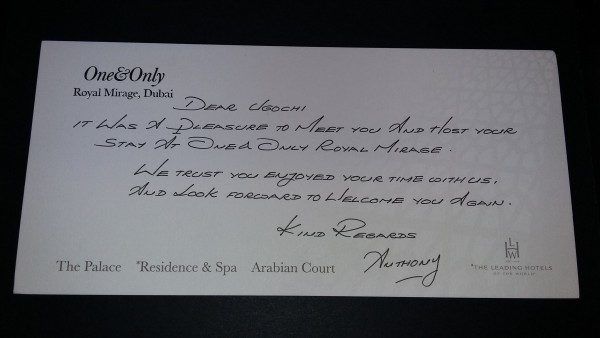 One&Only
Royal Mirage, Dubai
DEAR UGOCHI
IT WAS A PLEASURE TO MEET YOU AND HOST YOUR
STAY AT ONE & ONLY ROYAL MIRAGE.
WE TRUST YOU ENJOYED YOUR TIME WITH US,
AND LOOK FORWARD TO WELCOME YOU AGAIN.
KIND REGARDS
ANTHONY
The Palace *Residence & Spa Arabian Court
LHW
*THE LEADING HOTELS
OF THE WORLD